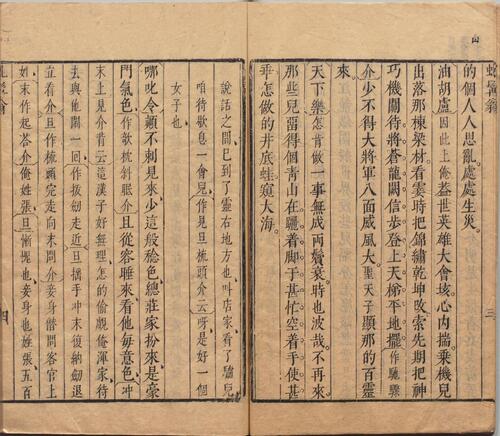 的個人人思亂。處處生災。
油胡盧 因此上俺蓋世英雄大會垓。心內揣。乗機兒
出落那棟梁材。看雲時把錦繡乾坤改。索先期把神
巧機關待。將蒼龍闕信步登。上天梯平地擺。作驟騾
介少不得大將軍八面威風大。聖天子顯那的百靈
來。
天下樂 怎肯做一事無成兩鬢衰。時也波哉。不再來。
那些兒留得個青山在。躧着脚于甚忙。空着手使甚
乖。怎做的井底蛙窺大海。
說話之間已到了靈右地方也叫店家看了驢兒
咱待歇息一會兒作見旦梳頭介云呀是好一個
女子也
哪吒令 頓不刺見來少。這般稔色總莊家扮來是豪
門氣色。作欹枕斜眠介且從容睡來。看他每意色。冲
末上見介云這漢子好無理怎的偷覷俺渾家待
去與他鬧一回作拔劒走近旦搖手冲末復納劒退
介旦作梳頭完走向末問介妾身借問客官上
姓末作起答介俺姓張旦慚愧也妾身也姓張五百
三
四